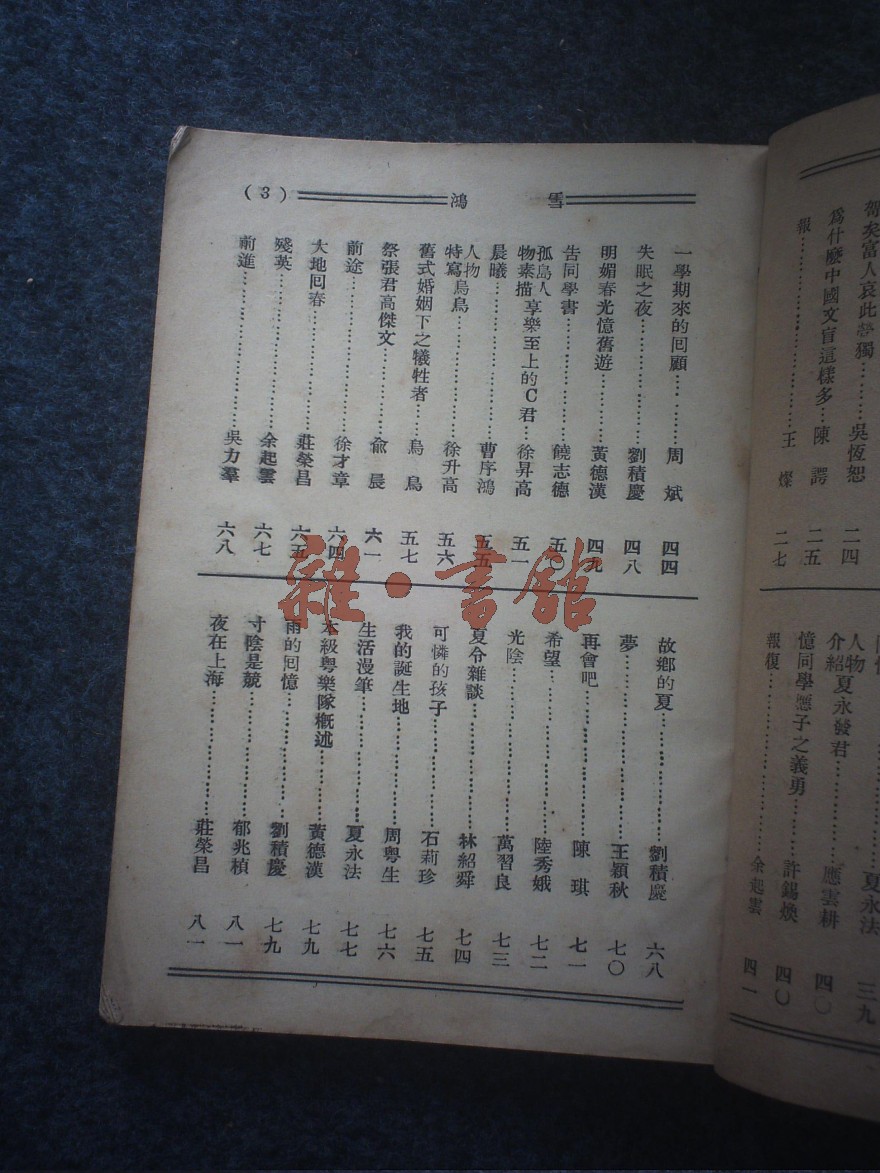 智矣富人哀此煢獨……吳恆恕 二四
爲什麽中國文盲這樣多…陳諤 二五
報……王燦 二七
人物介紹 夏永發君……夏永法 三九
憶同學應子之義勇……應雲耕 四〇
許錫煥 四〇
報復……余起雲 四一
雪鴻 (3)
一學期來的回顧……周斌 四四
失眠之夜……劉積慶 四八
明媚春光憶舊遊……黃德漢 四九
告同學書……饒志德 五〇
孤島人物素描 享樂至上的C君…徐昇高 五一
晨曦……曹序鴻 五五
人物特寫 烏烏……徐升高 五六
舊式婚姻下之犧牲者…烏烏 五七
祭張君高傑文……俞晨 六一
前途……徐才章 六四
大地囘春……莊榮昌 六五
殘英……余起雲 六七
前進……吳力羣 六八
故鄉的夏……劉積慶 六八
夢……王穎秋 七〇
再會吧……陳琪 七一
希望……陸秀娥 七二
光陰……萬習良 七三
夏令雜談……林紹舜 七四
可憐的孩子……石莉珍 七五
我的誕生地……周粵生 七六
生活漫筆……夏永法 七七
本級粤樂隊概述……黃德漢 七九
雨的囘憶……劉積慶 七九
寸陰是競……郁兆楨 八一
夜在上海……莊榮昌 八一
雜·書館